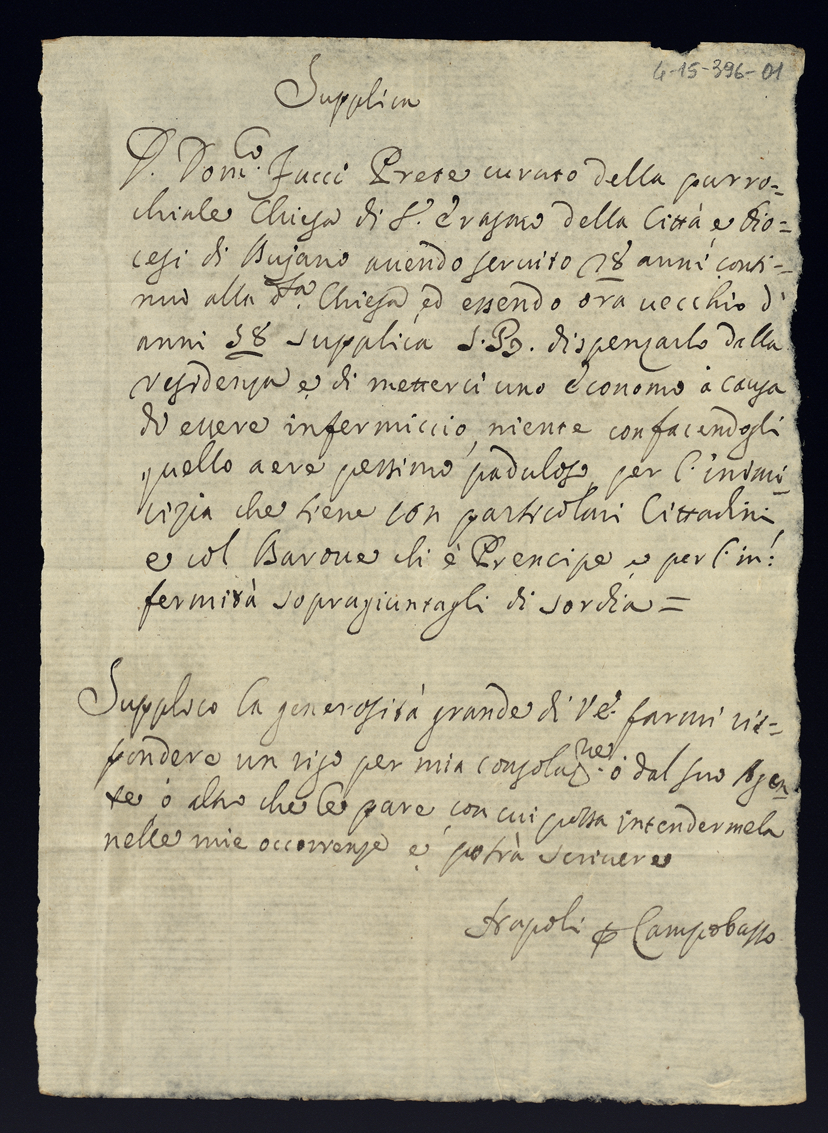 4-15-396-01
Supplica
D. Dom.co Iucci Prete curato della parro=
chiale Chiesa di S. Erasmo della Città e dio=
cesi di Bojano avendo servito 28 anni conti=
nui alla d.ta Chiesa, ed essendo ora vecchio d'
anni 58 supplica S. Pd. dispensarlo dalla
residenza e di metterci uno economo à causa
di essere infermiccio, niente confacendogli
quello aere pessimo paduloso, per l'inimi
cizia che tiene con particolari Cittadini
e col Barone ch'è Prencipe e per l'in:
fermità sopragiuntagli di sordia=
Supplico la generosità grande di V.E. farmi ris=
pondere un rigo per mia consolaz.ne ò dal suo Agen
te ò altro che le pare, con cui possa intendermela
nelle mie occorrenze e potrà scrivere
Napoli p Campobasso